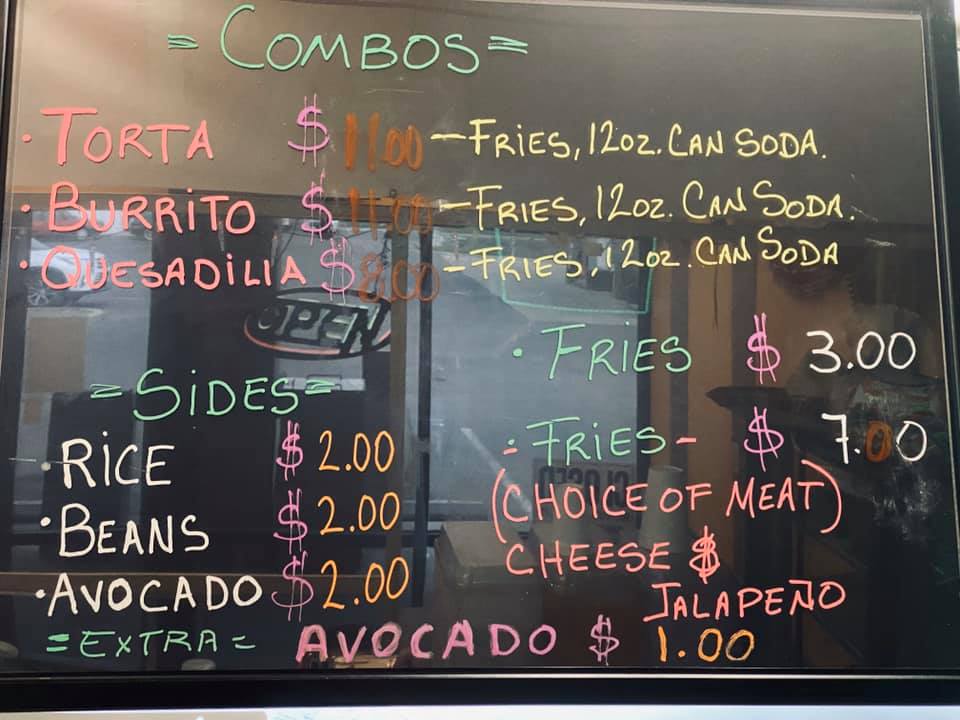 = COMBOS =
• TORTA $ 11.00 – FRIES, 12oz. CAN SODA.
• BURRITO $ 11.00 – FRIES, 12oz. CAN SODA.
• QUESADILIA $ 8.00 – FRIES, 12oz. CAN SODA
OPEN
= SIDES =
• RICE $ 2.00
• BEANS $ 2.00
• AVOCADO $ 2.00
• FRIES $ 3.00
= FRIES - $ 7.00
(CHOICE OF MEAT)
CHEESE $
JALAPEÑO
= EXTRA = AVOCADO $ 1.00
CLOSED